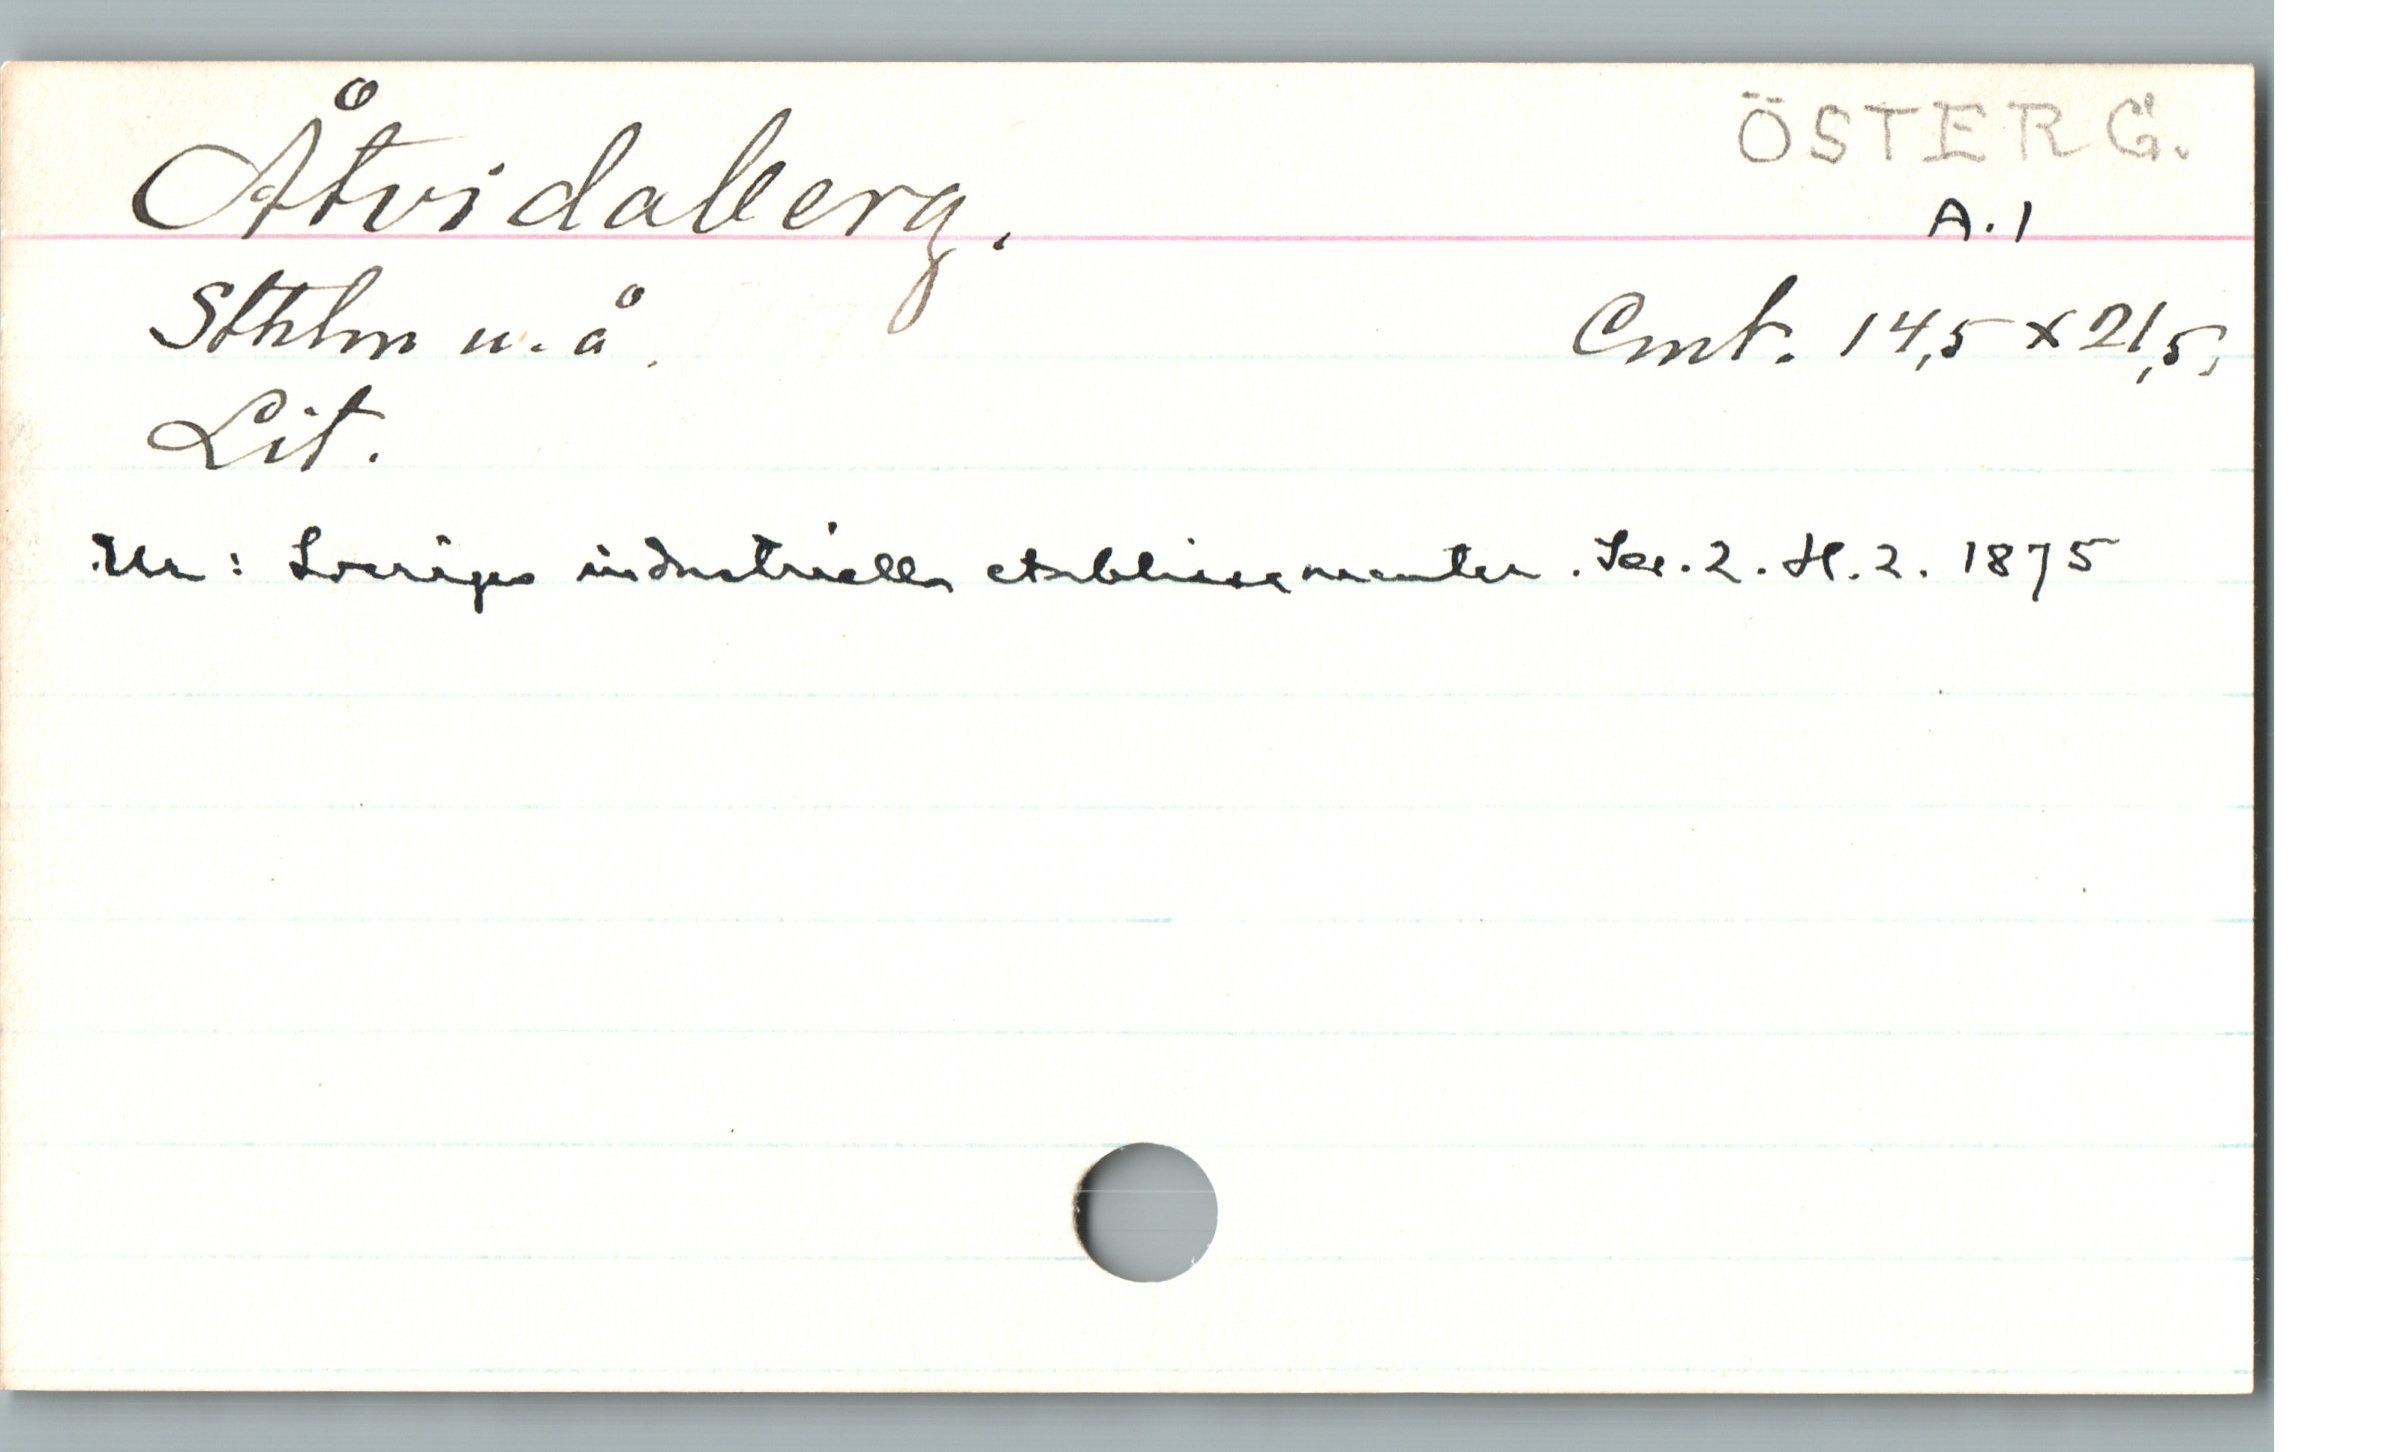 Åtvidaberg.
ÖSTERG.
A.1
Sthlm u. å.
Cmt. 14,5 x 21,5,
Lit.
Ur: Sveriges industriella etablissementer. Ser. 2. H. 2. 1875